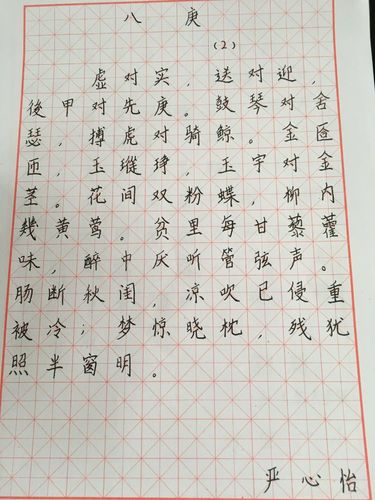 八庚
（2）
虚对实，送对迎，
後甲对先庚。鼓琴对舍
瑟，搏虎对骑鲸。金匼
匝，玉瑽琤，玉宇对金
茎。花间双粉蝶，柳内
幾黄莺。贫里每甘藜藿
味，醉中厌听管弦声。
肠断秋闺，凉吹已侵重
被冷；梦惊晓枕，残犹
照半窗明。
严心怡